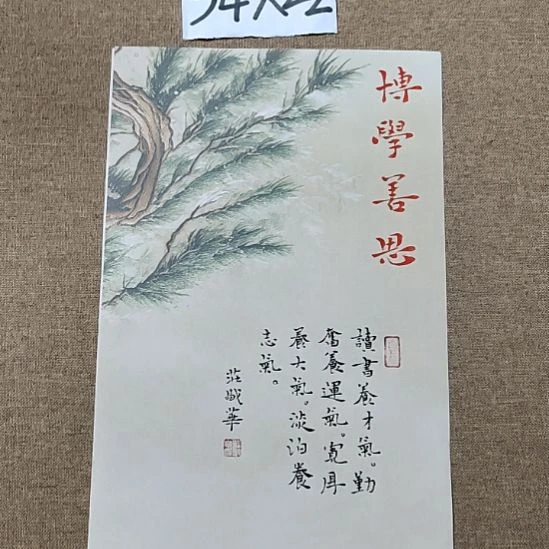 54X22
博學善思
讀書養才氣。勤
奮養運氣。寬厚
養大氣。淡泊養
志氣。